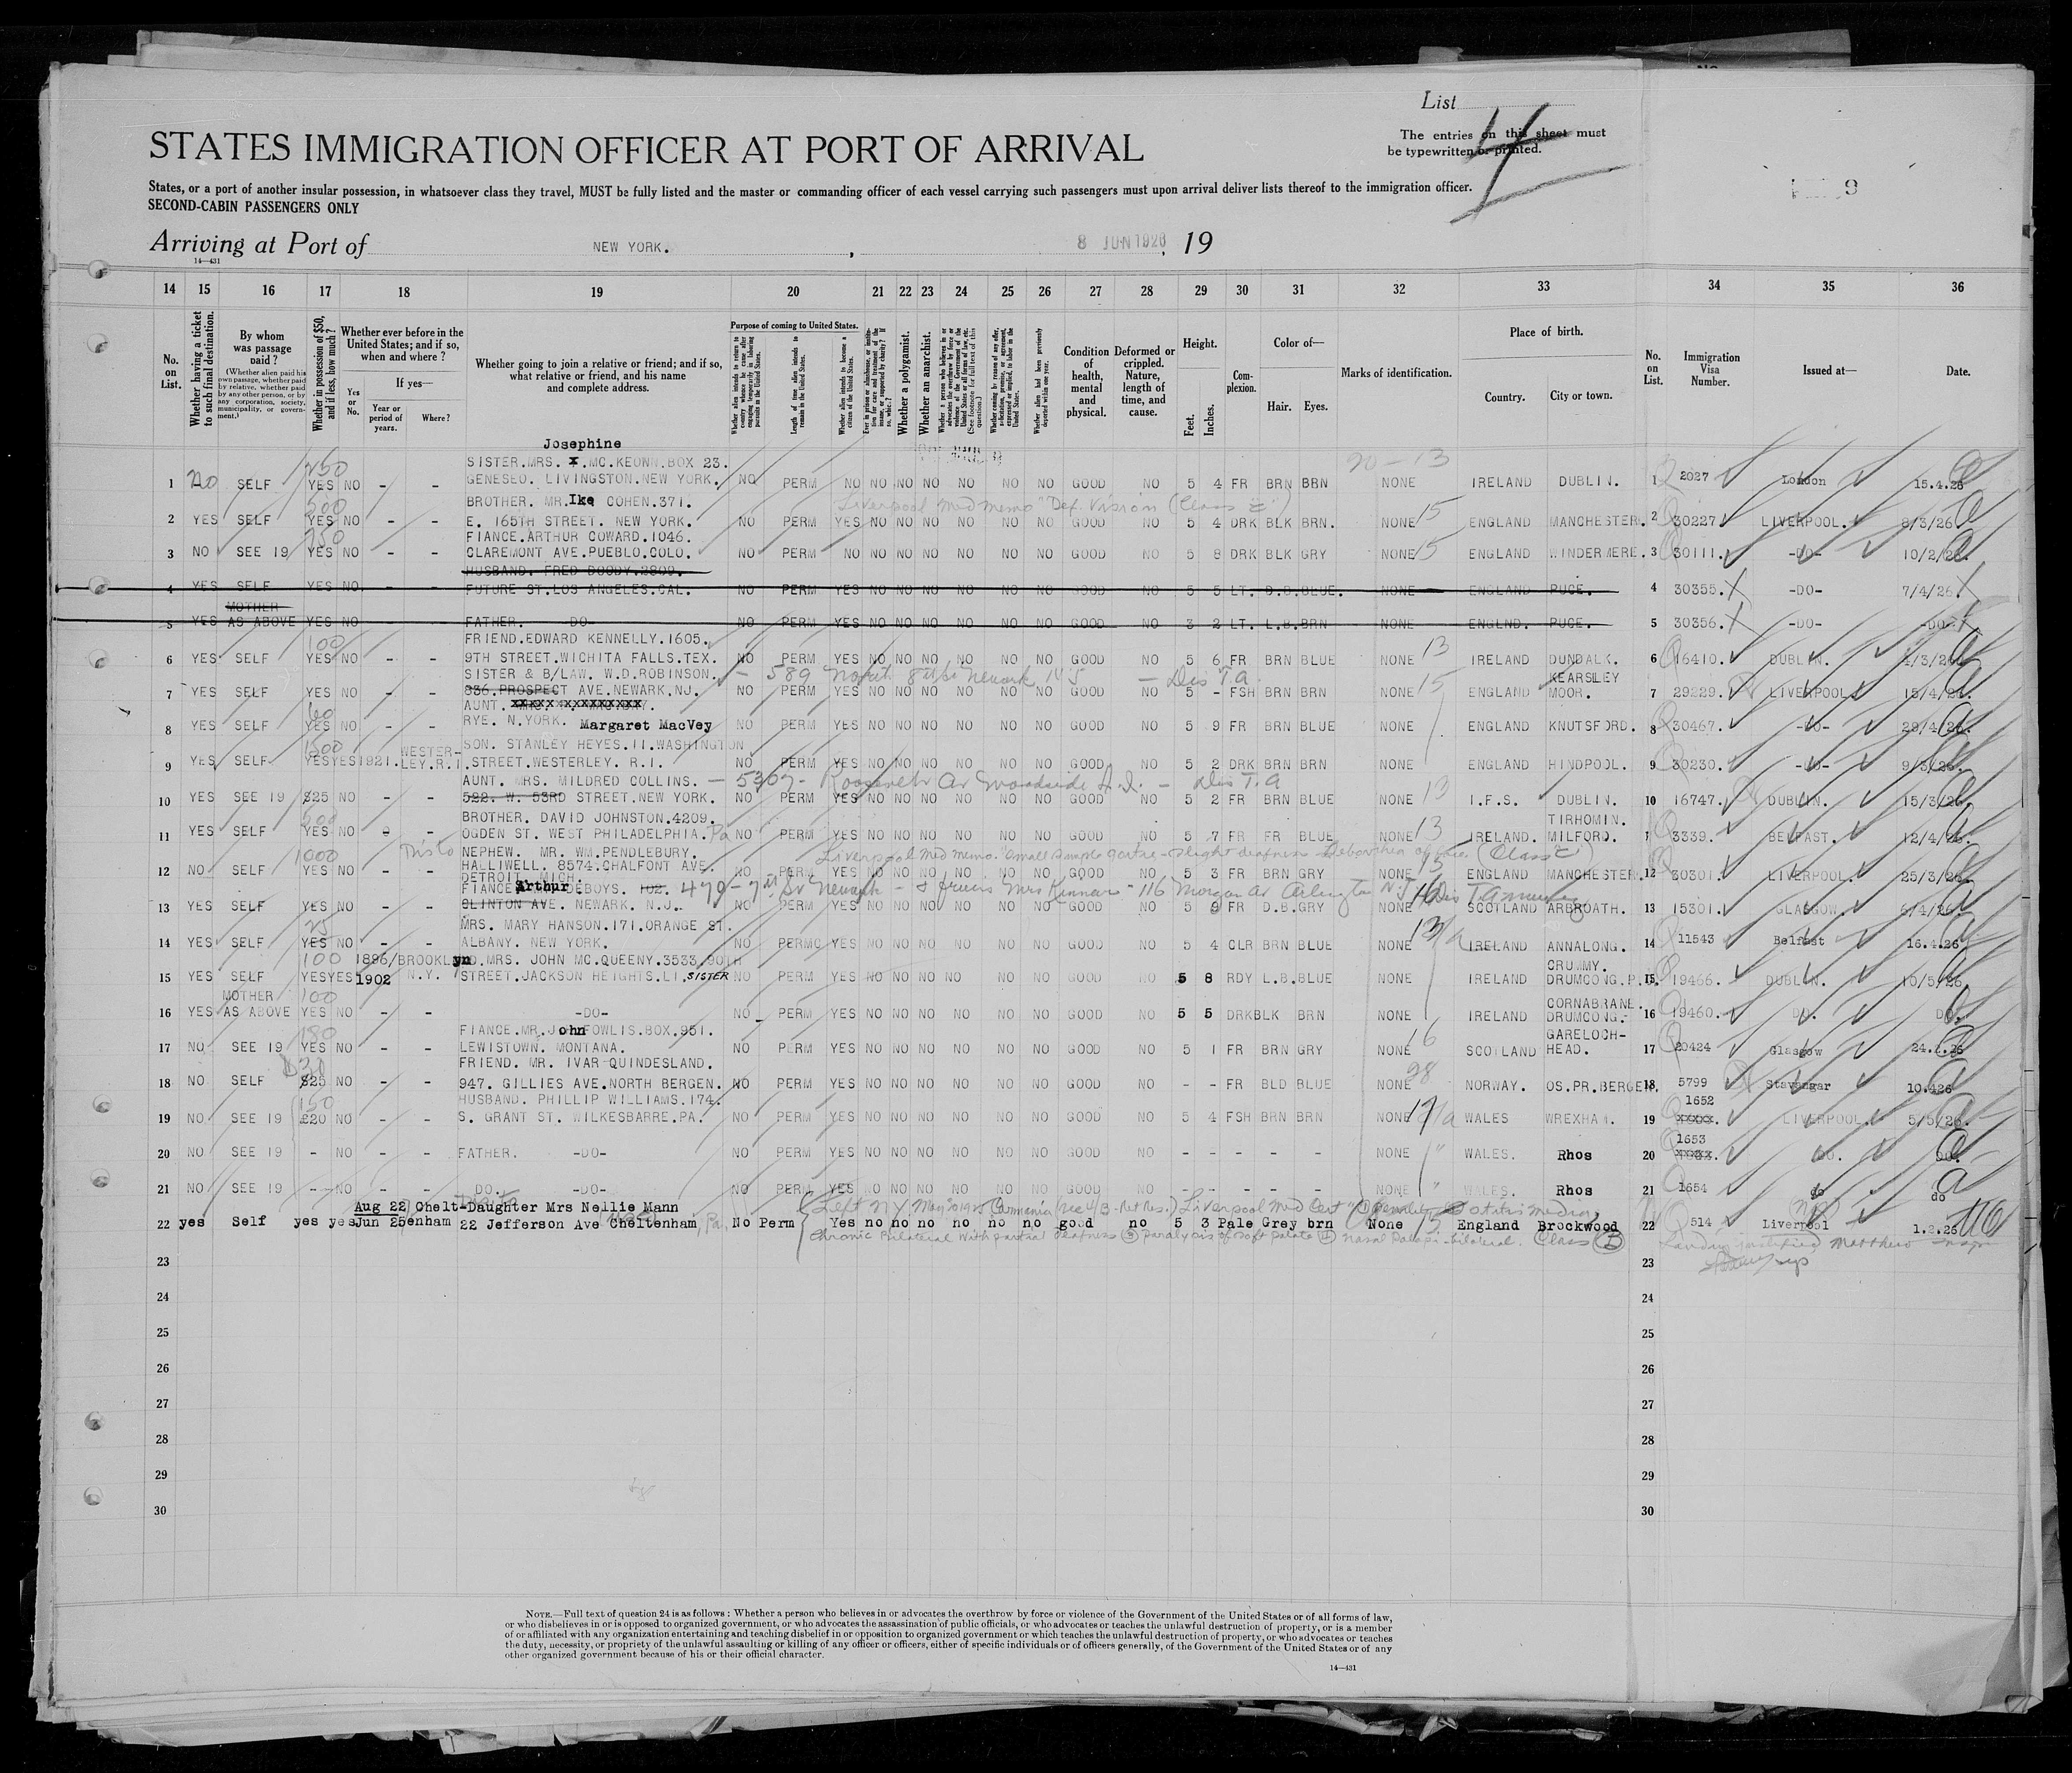 List
4
The entries on this sheet must
be typewritten or printed.
STATES IMMIGRATION OFFICER AT PORT OF ARRIVAL
States, or a port of another insular possession, in whatsoever class they travel, MUST be fully listed and the master or commanding officer of each vessel carrying such passengers must upon arrival deliver lists thereof to the immigration officer.
SECOND-CABIN PASSENGERS ONLY
9
Arriving at Port of NEW YORK. , 8 JUN 1926, 19
14—431
14 15 16 17 18 19 20 21 22 23 24 25 26 27 28 29 30 31 32 33 34 35 36
No. on List.
Whether having a ticket to such final destination.
By whom was passage paid?
(Whether alien paid his own passage, whether paid by relative, whether paid by any other person, or by any corporation, society, municipality, or government.)
Whether in possession of $50, and if less, how much?
Whether ever before in the United States; and if so, when and where?
Yes or No.
If yes—
Year or period of years.
Where?
Whether going to join a relative or friend; and if so, what relative or friend, and his name and complete address.
Purpose of coming to United States.
Length of time alien intends to remain in the United States.
Whether alien intends to become a citizen of the United States.
Whether a polygamist.
Whether an anarchist.
Condition of health, mental and physical.
Deformed or crippled. Nature, length of time, and cause.
Height.
Feet. Inches.
Complexion.
Color of—
Hair. Eyes.
Marks of identification.
Place of birth.
Country. City or town.
No. on List.
Immigration Visa Number.
Issued at—
Date.
Josephine
250 SISTER.MRS. .MC.KEOWN.BOX 23. 20-13
1 No SELF YES NO - - GENESEO. LIVINGSTON.NEW YORK. NO PERM NO NO NO NO NO NO NO GOOD NO 5 4 FR BRN BRN NONE IRELAND DUBLIN. 1 2027 London 15.4.26
500 BROTHER. MR.Ike COHEN.371. Liverpool med memo "Def. Vision (Class C)
2 YES SELF YES NO - - E. 165TH STREET. NEW YORK. NO PERM YES NO NO NO NO NO NO GOOD NO 5 4 DRK BLK BRN. NONE 15 ENGLAND MANCHESTER. 2 30227 LIVERPOOL. 8/3/26
FIANCE.ARTHUR COWARD.1046.
3 NO SEE 19 YES NO - - CLAREMONT AVE.PUEBLO.COLO. NO PERM NO NO NO NO NO NO NO GOOD NO 5 8 DRK BLK GRY NONE 15 ENGLAND WINDERMERE. 3 30111. -DO- 10/2/26.
HUSBAND. FRED DOODY.2809.
4 YES SELF YES NO - - FUTURE ST.LOS ANGELES.CAL. NO PERM YES NO NO NO NO NO NO GOOD NO 5 5 LT. D.B.BLUE. NONE ENGLAND PUCE. 4 30355. -DO- 7/4/26.
MOTHER
5 YES AS ABOVE YES NO FATHER. -DO- NO PERM YES NO NO NO NO NO NO GOOD NO 3 2 LT. L.B.BRN NONE ENGLND. PUCE. 5 30356. -DO- -DO-
100 FRIEND.EDWARD KENNELLY.1605.
6 YES SELF YES NO - - 9TH STREET.WICHITA FALLS.TEX. NO PERM YES NO NO NO NO NO NO GOOD NO 5 6 FR BRN BLUE NONE 13 IRELAND DUNDALK. 6 16410. DUBLIN. 4/3/26
SISTER & B/LAW. W.D.ROBINSON. — 589 North 8th St Newark NJ — Dis T.A KEARSLEY
7 YES SELF YES NO - - 836.PROSPECT AVE.NEWARK.NJ. NO PERM YES NO NO NO NO NO NO GOOD NO 5 - FSH BRN BRN NONE 15 ENGLAND MOOR. 7 29229. LIVERPOOL 15/4/26.
60 AUNT.
8 YES SELF YES NO - - RYE. N.YORK. Margaret MacVey NO PERM YES NO NO NO NO NO NO GOOD NO 5 9 FR BRN BLUE NONE ENGLAND KNUTSFORD. 8 30467. -DO- 29/4/26.
1500 WESTER- SON. STANLEY HEYES.11.WASHINGTON
9 YES SELF YES YES 1921. LEY.R.I. STREET.WESTERLEY. R.I. NO PERM YES NO NO NO NO NO NO GOOD NO 5 2 DRK BRN BRN NONE ENGLAND HINDPOOL. 9 30230. -DO- 9/3/26.
AUNT. MRS. MILDRED COLLINS. — 5307- Roosevelt Av Woodside L.I. — Dis T.A
10 YES SEE 19 $25 NO - - 522. W. 53RD STREET.NEW YORK. NO PERM YES NO NO NO NO NO NO GOOD NO 5 2 FR BRN BLUE NONE 13 I.F.S. DUBLIN. 10 16747. DUBLIN. 15/3/26.
500 BROTHER. DAVID JOHNSTON.4209. TIRHOMIN.
11 YES SELF YES NO - - OGDEN ST. WEST PHILADELPHIA. Pa NO PERM YES NO NO NO NO NO NO GOOD NO 5 7 FR FR BLUE NONE 13 IRELAND. MILFORD. 3339. BELFAST. 12/4/26.
1000 NEPHEW. MR. WM.PENDLEBURY. Liverpool Med memo. "Small simple goitre - slight deafness (Class C)
12 NO SELF YES NO - - HALLIWELL. 8574.CHALFONT AVE. DETROIT. MICH. NO PERM YES NO NO NO NO NO NO GOOD NO 5 3 FR BRN GRY NONE 15 ENGLAND MANCHESTER. 12 30301. LIVERPOOL. 25/3/26.
FIANCE Arthur DEBOYS. 102. 479-7th Av Newark - Mrs Kinnar - 116 Morgan Av Arlington N.J.
13 YES SELF YES NO - - CLINTON AVE. NEWARK. N.J. NO PERM YES NO NO NO NO NO NO GOOD NO 5 9 FR D.B.GRY NONE 16 SCOTLAND ARBROATH. 13 15301. GLASGOW. 6/4/26.
25 MRS. MARY HANSON.171.ORANGE ST.
14 YES SELF YES NO - - ALBANY. NEW YORK. NO PERMO YES NO NO NO NO NO NO GOOD NO 5 4 CLR BRN BLUE NONE 13/a IRELAND ANNALONG. 14 11543 Belfast 16.4.26
100 1896/ BROOKLyn D.MRS. JOHN MC.QUEENY.3533.90TH CRUMMY.
15 YES SELF YES YES 1902 N.Y. STREET.JACKSON HEIGHTS.LI. SISTER NO PERM YES NO NO NO NO NO NO GOOD NO 5 8 RDY L.B.BLUE NONE IRELAND DRUMCONG. 15. 19466. DUBLIN. 10/5/26
MOTHER 100 CORNABRANE.
16 YES AS ABOVE YES NO - - -DO- NO PERM YES NO NO NO NO NO NO GOOD NO 5 5 DRK BLK BRN NONE IRELAND DRUMCONG. 16 19460. DO. DO.
180 FIANCE.MR.John FOWLIS.BOX.951. GARELOCH-
17 NO SEE 19 YES NO - - LEWISTOWN. MONTANA. NO PERM YES NO NO NO NO NO NO GOOD NO 5 1 FR BRN GRY NONE 16 SCOTLAND HEAD. 17 20424 Glasgow 24. .26
FRIEND. MR. IVAR-QUINDESLAND.
18 NO SELF $25 NO - - 947. GILLIES AVE.NORTH BERGEN. NO PERM YES NO NO NO NO NO NO GOOD NO - - FR BLD BLUE NONE 98 NORWAY. OS.PR.BERGEN. 18 5799 Stavangar 10.426
150 HUSBAND. PHILLIP WILLIAMS.174. 1652
19 NO SEE 19 £20 NO - - S. GRANT ST. WILKESBARRE.PA. NO PERM YES NO NO NO NO NO NO GOOD NO 5 4 FSH BRN BRN NONE 17/a WALES WREXHAM. 19 XXXXX. LIVERPOOL. 5/5/26.
1653
20 NO SEE 19 - NO - - FATHER. -DO- NO PERM YES NO NO NO NO NO NO GOOD NO - - - - - NONE " WALES. Rhos 20 XXXXX. DO. DO.
21 NO SEE 19 - NO - - DO. -DO- NO PERM YES NO NO NO NO NO NO GOOD NO NONE " WALES. Rhos 21 1654 do do
Aug 22 Chelt- Daughter Mrs Nellie Mann Left NY Carmania Liverpool Med Cert Otitis media
22 yes Self yes yes Jun 25 enham 22 Jefferson Ave Cheltenham, Pa. No Perm Yes no no no no no no good no 5 3 Pale Grey brn None 15 England Brookwood 22 514 Liverpool 1.2.26
Chronic Bilateral with partial deafness (3) Paralysis of soft palate (4) nasal Polypi-bilateral. Class (B)
23 23
24 24
25 25
26 26
27 27
28 28
29 29
30 30
NOTE.—Full text of question 24 is as follows: Whether a person who believes in or advocates the overthrow by force or violence of the Government of the United States or of all forms of law,
or who disbelieves in or is opposed to organized government, or who advocates the assassination of public officials, or who advocates or teaches the unlawful destruction of property, or is a member
of or affiliated with any organization entertaining and teaching disbelief in or opposition to organized government or which teaches the unlawful destruction of property, or who advocates or teaches
the duty, necessity, or propriety of the unlawful assaulting or killing of any officer or officers, either of specific individuals or of officers generally, of the Government of the United States or of any
other organized government because of his or their official character.
14—431